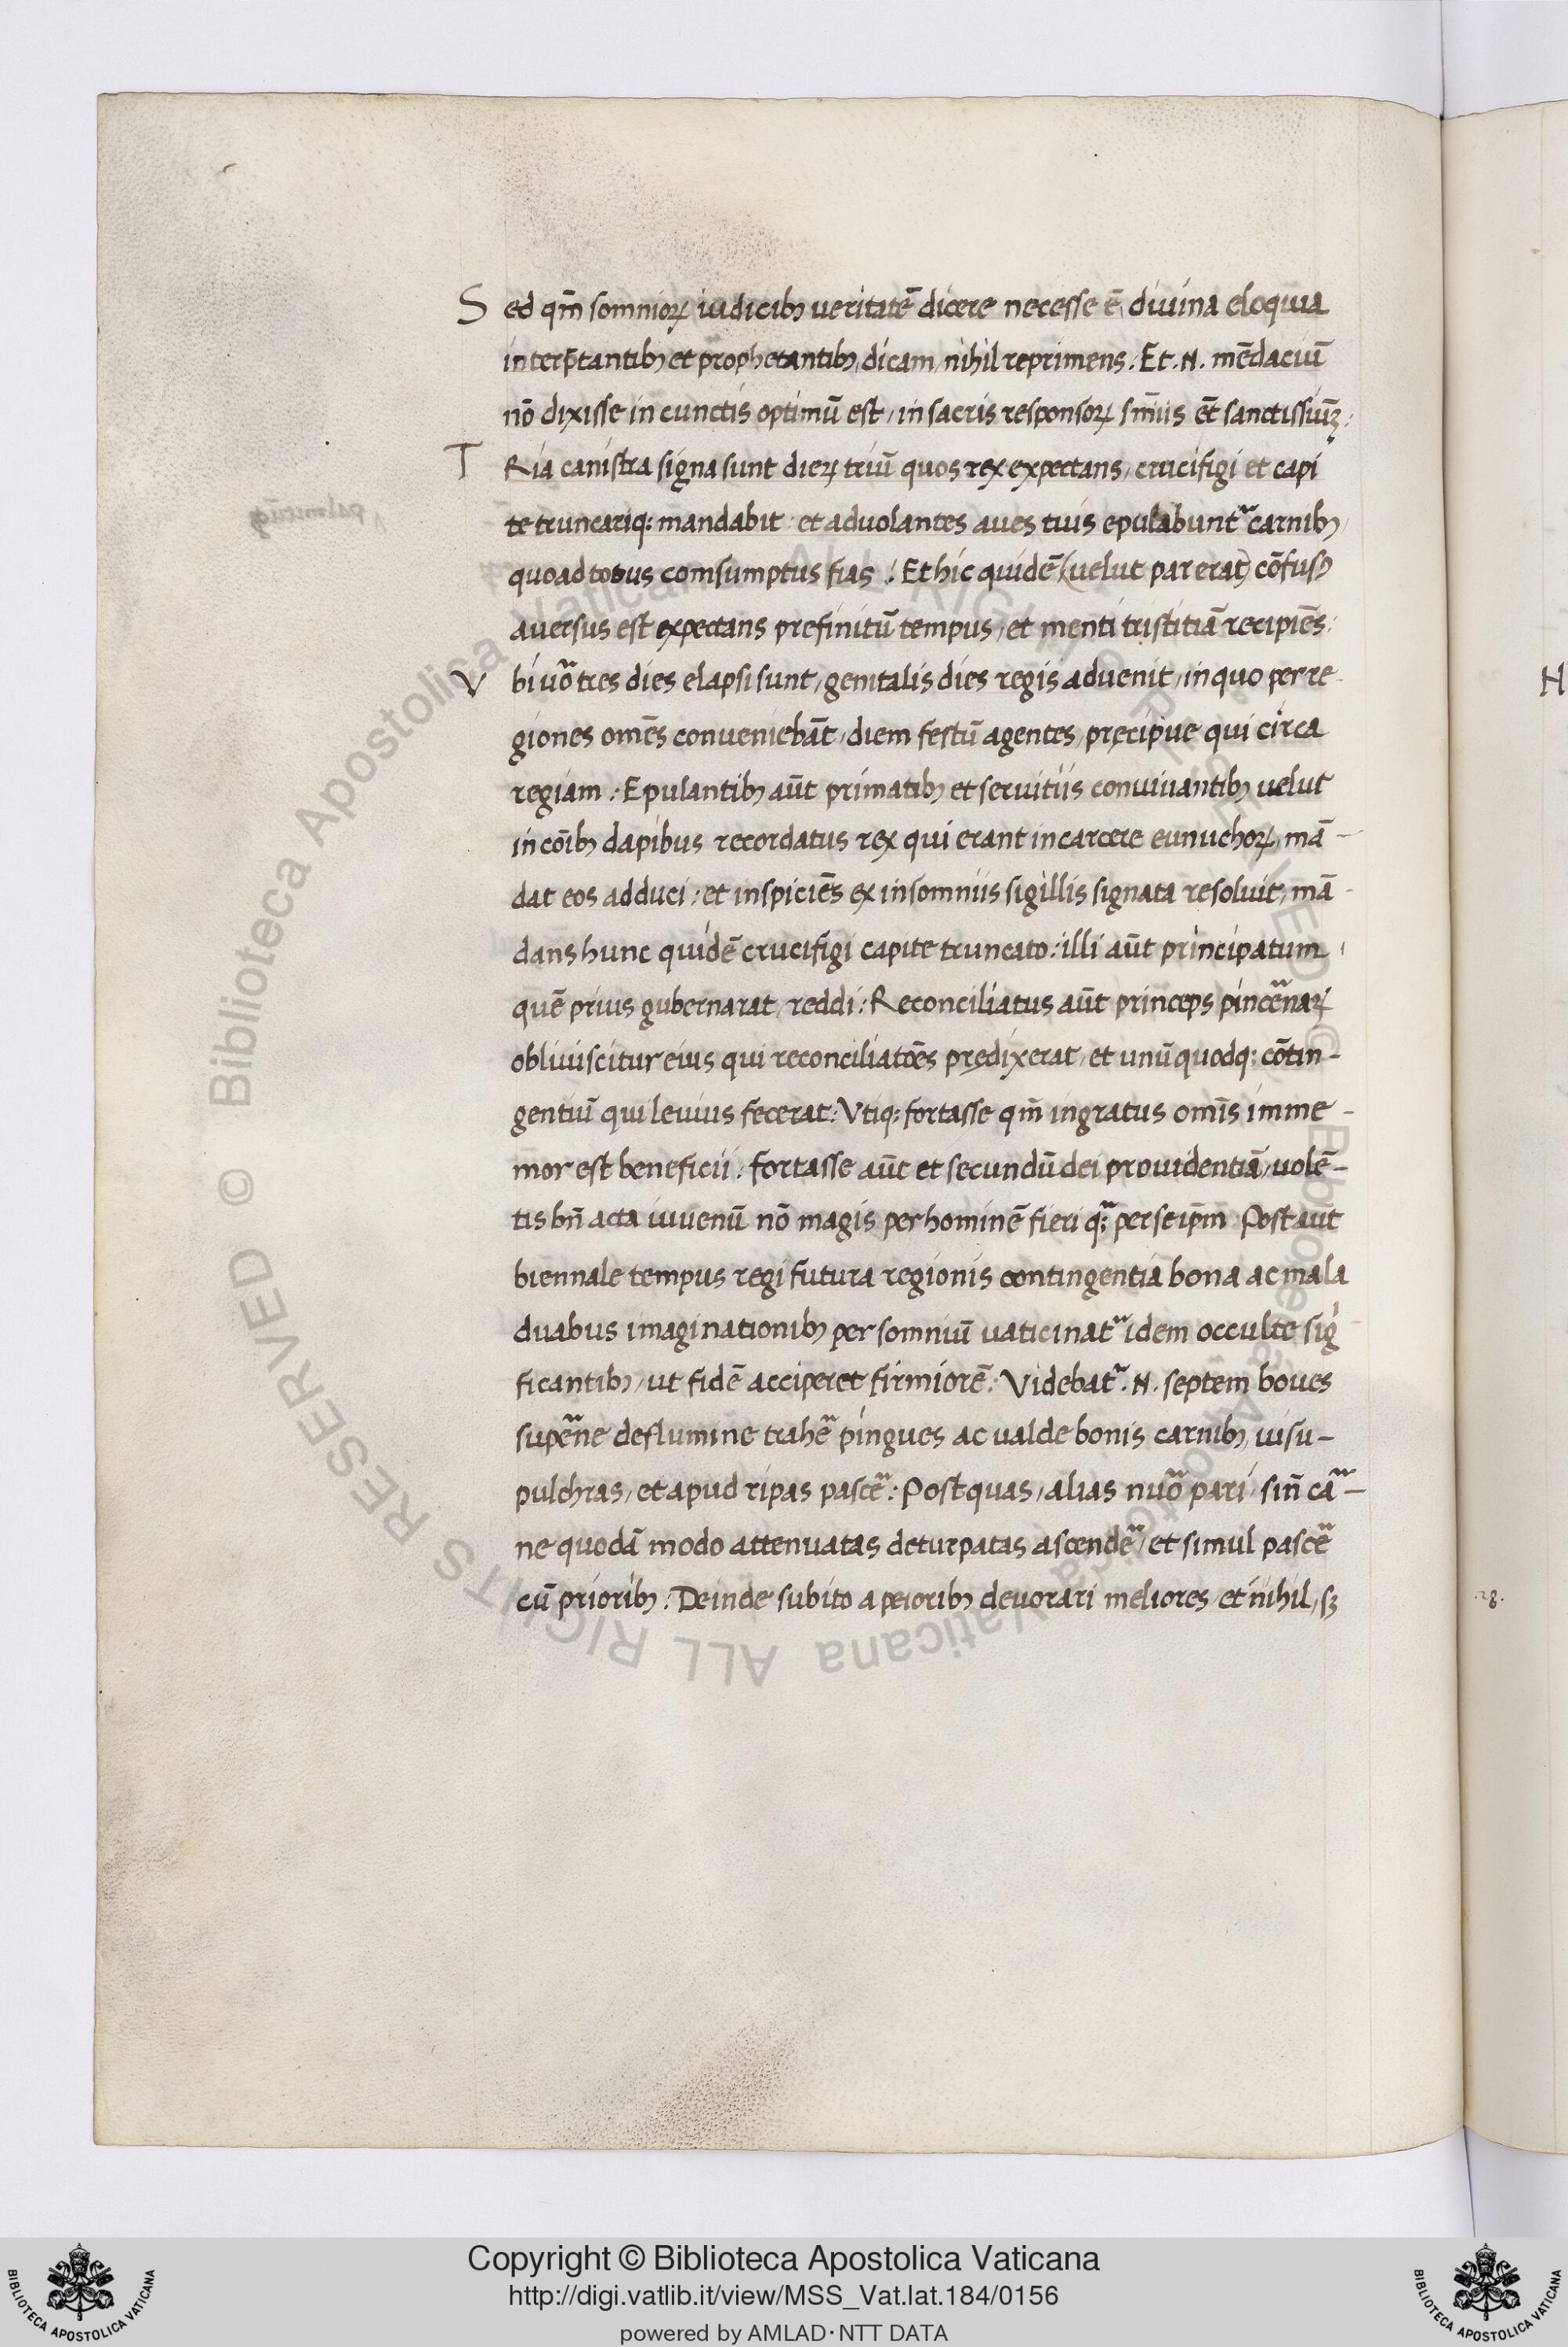 Sed qm̄ somnioꝝ iudicibꝫ ueritatē dicere necesse ē, diuina eloquia
interp̄tantibꝫ et prophetantibꝫ, dicam, nihil reprimens. Et .N. mēdaciū
nō dixisse in cunctis optimū est, in sacris responsoꝝ sm̄iis et̄ sanctissiūꝫ:
TRia canistra signa sunt dieꝝ triū quos rex expectans, crucifigi et capi
te truncariq: mandabit: et aduolantes aues tuis epulabunt᷑ carnibꝫ,
quoad totus comsumptus fias: Et hic quidē (uelut par erat) cōfusꝰ
auersus est expectans prefinitū tempus, et menti tristitiā recipiēs:
Vbi uoᷓ tres dies elapsi sunt, genitalis dies regis aduenit, in quo per re
giones omēs conueniebāt, diem festū agentes, pręcipue qui circa
regiam: Epulantibꝫ aūt primatibꝫ et seruitiis conuiuantibꝫ uelut
in cōibꝫ dapibus recordatus rex qui erant in carcere eunuchoꝝ, mā-
dat eos adduci: et inspiciēs ex insomniis sigillis signata resoluit, mā-
dans hunc quidē crucifigi capite truncato: illi aūt principatum,
quē prius gubernarat, reddi: Reconciliatus aūt princeps pinceᷓnaꝝ
obliuiscitur eius qui reconciliatōes prędixerat, et unūquodq: cōtin-
gentiū qui leuius fecerat: Vtiq: fortasse qm̄ ingratus omīs imme-
mor est beneficii: fortasse aūt et secundū dei prouidentiā, uolē-
tis bn̄ acta iuuenū nō magis per hominē fieri q:ᷓ per se ip̄m: Post aūt
biennale tempus regi futura regionis contingentia bona ac mala
duabus imaginationibꝫ per somniū uaticinat᷑ idem occulte sig̍
ficantibꝫ, ut fidē acciperet firmiorē: Videbat᷑ .N. septem boues
supeᷓne de flumine traheᷓ pingues ac ualde bonis carnibꝫ, uisu-
pulchras, et apud ripas pasceᷓ: Post quas, alias nuoᷓ pari, sin̄ caᷓ-
ne quodā modo attenuatas deturpatas ascendeᷓ, et simul pasceᷓ
cū prioribꝫ: Deinde subito a peioribꝫ deuorari meliores, et nihil, sꝫ
H
.28.
© Biblioteca Apostolica Vaticana ALL RIGHTS RESERVED © Biblioteca Apostolica Vaticana ALL RIGHTS RESERVED
Copyright © Biblioteca Apostolica Vaticana
http://digi.vatlib.it/view/MSS_Vat.lat.184/0156
powered by AMLAD·NTT DATA
BIBLIOTECA APOSTOLICA VATICANA
BIBLIOTECA APOSTOLICA VATICANA